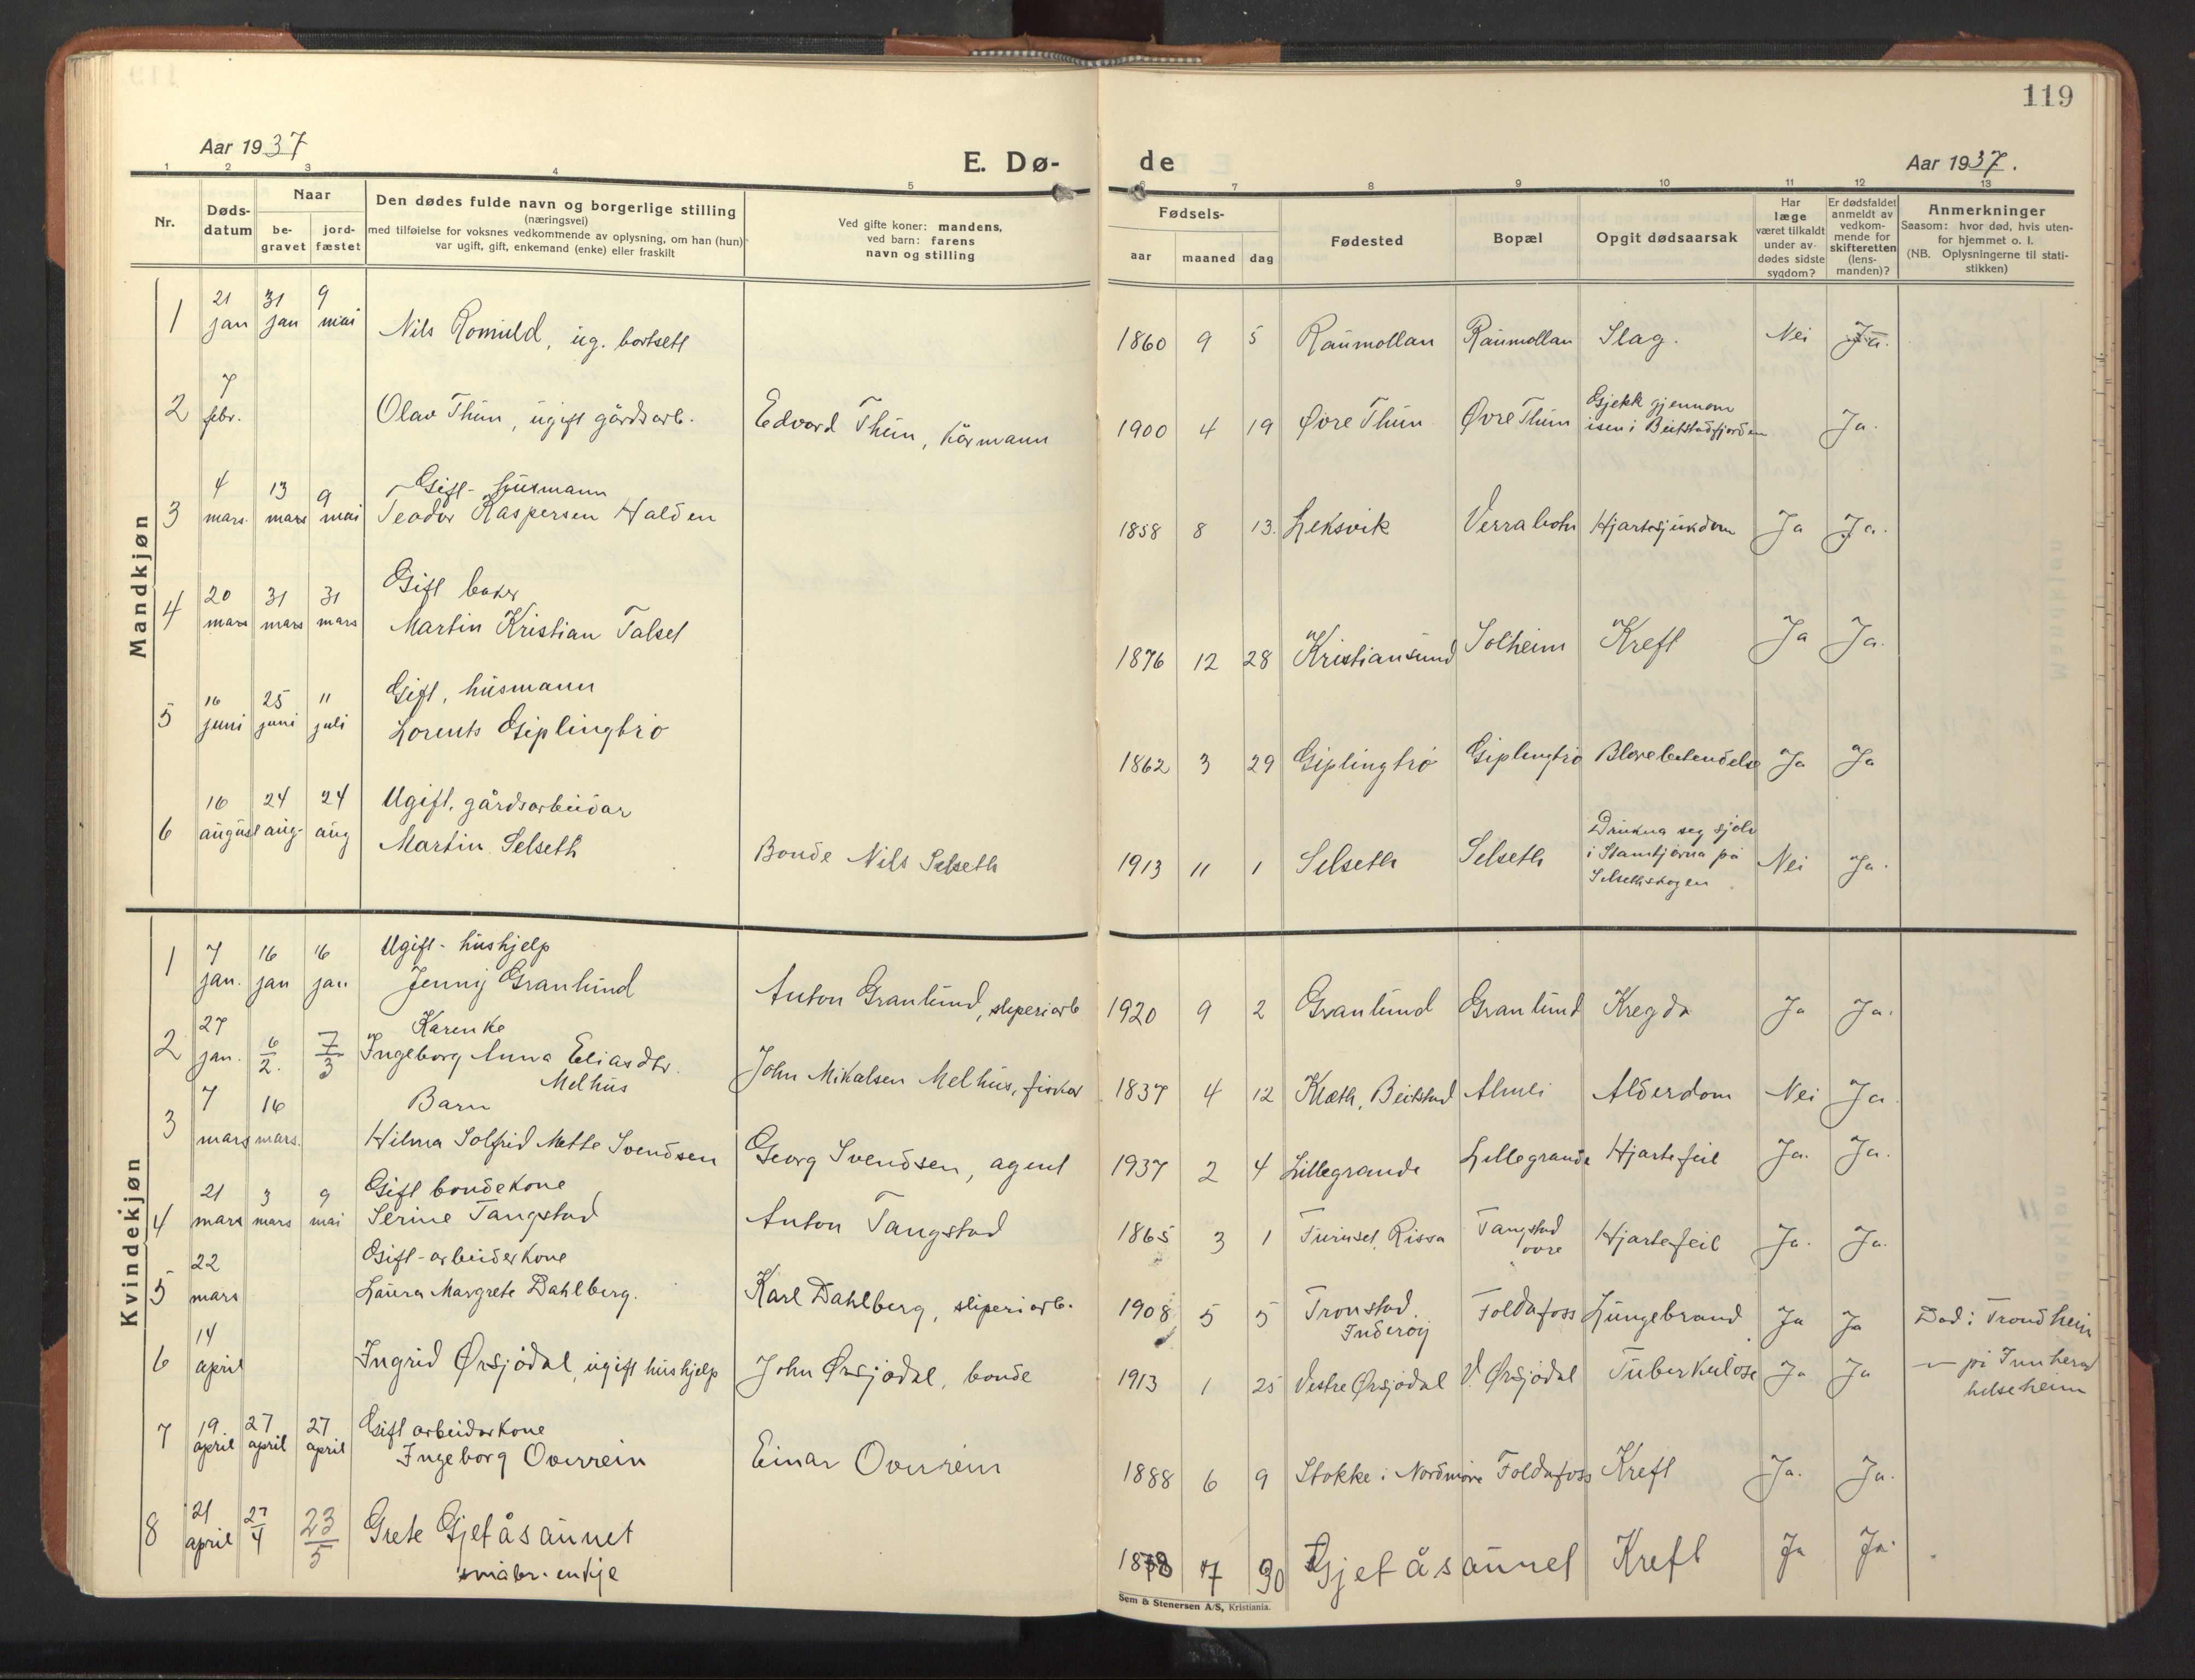 119
Aar 1937
E. Dø-
de
Aar 1937.
1 2 3 4 5 6 7 8 9 10 11 12 13
Nr.
Døds-
datum
Naar
be-
gravet
jord-
fæstet
Den dødes fulde navn og borgerlige stilling
(næringsvei)
med tilføielse for voksnes vedkommende av oplysning, om han (hun)
var ugift, gift, enkemand (enke) eller fraskilt
Ved gifte koner: mandens,
ved barn: farens
navn og stilling
Fødsels-
aar maaned dag
Fødested
Bopæl
Opgit dødsaarsak
Har
læge
været tilkaldt
under av-
dødes sidste
sygdom?
Er dødsfaldet
anmeldt av
vedkom-
mende for
skifteretten
(lens-
manden)?
Anmerkninger
Saasom: hvor død, hvis uten-
for hjemmet o. l.
(NB. Oplysningerne til stati-
stikken)
Mandkjøn
1 21 jan 31 jan 9 mai Nils Romuld, ug. bortsett 1860 9 5 Raumollan Raumollan Slag. Nei Ja.
2 7 febr. Olav Thun, ugift gårdsarb. Edvard Thun, kårmann 1900 4 19 Øvre Thun Øvre Thun Gjekk gjennom
isen i Beitstadfjorden Ja.
3 4 mars. 13 mars 9 mai Gift - husmann
Teodor Kaspersen Halden 1858 8 13. Leksvik Verrabotn Hjartesjukdom Ja Ja.
4 20 mars 31 mars 31 mars Gift baker
Martin Kristian Talset 1876 12 28 Kristiansund Solheim Kreft Ja Ja.
5 16 juni 25 juni 11 juli Gift, husmann
Lorents Giplingtrø 1862 3 29 Giplingtrø Giplingtrø Blærebetendelse Ja Ja
6 16 august 24 aug. 24 aug Ugift. gårdsarbeidar
Martin Selseth Bonde Nils Selseth 1913 11 1 Selseth Selseth Drukna seg sjølv
i Stamtjørna på
Selsethskogen Nei Ja.
Kvindekjøn
1 7 jan. 16 jan 16 jan Ugift - hushjelp
Jenny Granlund Anton Granlund, sliperiarb 1920 9 2 Granlund Granlund Kregda Ja Ja.
2 27 jan. 6/2. 7/3 Kårenke
Ingeborg Anna Eliasdtr.
Melhus John Mikalsen Melhus, fiskar 1837 4 12 Klæth, Beitstad Almli Alderdom Nei Ja.
3 7 mars 16 mars. Barn
Hilma Solfrid Mette Svendsen Georg Svendsen, agent 1937 2 4 Lillegrande Lillegrande Hjartefeil Ja. Ja.
4 21 mars 3 mars 9 mai Gift bondekone
Serine Tangstad Anton Tangstad 1865 3 1 Furuset, Rissa Tangstad
øvre Hjartefeil Ja. Ja.
5 22 mars Gift - arbeiderkone
Laura Margrete Dahlberg. Karl Dahlberg, sliperiarb. 1908 5 5 Tronstad.
Inderøy Foldafoss Lungebrand Ja Ja Død i Trondheim
6 14 april Ingrid Ørsjødal, ugift hushjelp John Ørsjødal, bonde 1913 1 25 Vestre Ørsjødal V. Ørsjødal Tuberkulose Ja Ja — på Innherad
helseheim
7 19. april 27 april 27 april Gift arbeidarkone
Ingeborg Overrein Einar Overrein 1888 6 9 Stokke i Nordmøre Foldafoss Kreft Ja. Ja.
8 21 april 27/4 23/5 Grete Gjetåsaunet
småbr. enkje 1878 7 30 Gjetåsaunet Kreft Ja Ja.
Sem & Stenersen A/S, Kristiania.